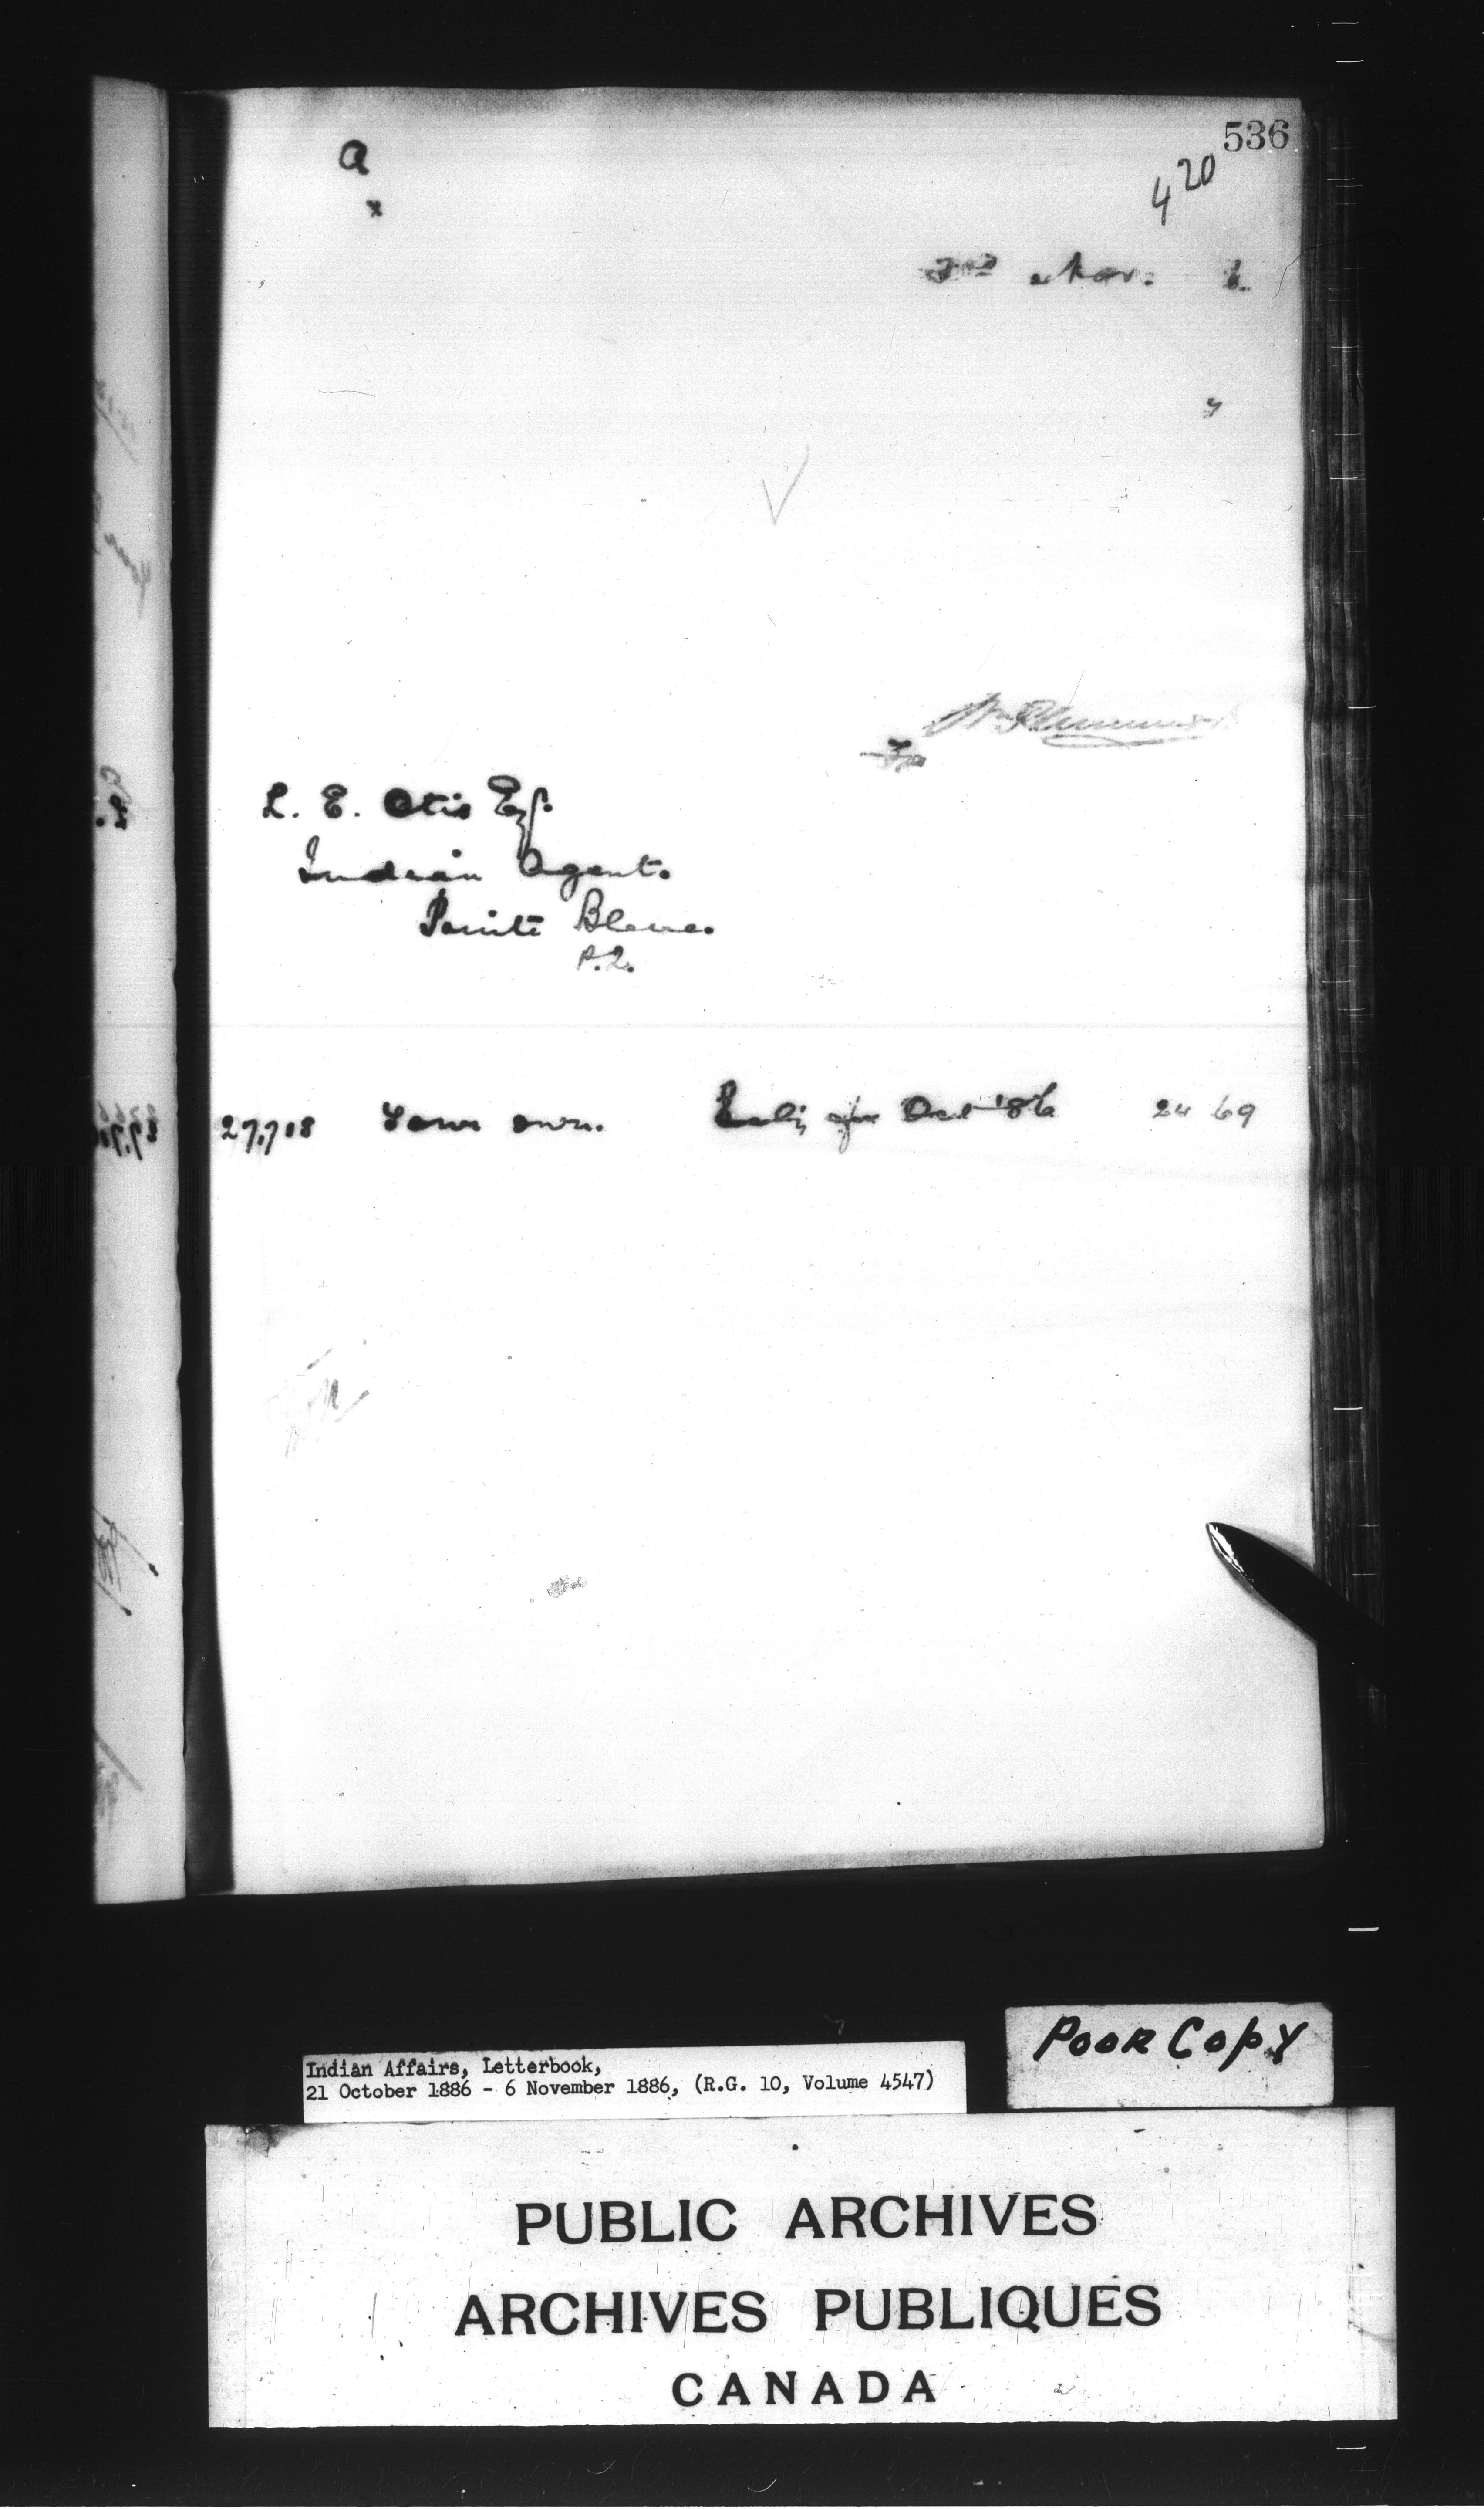 536
a
420
x
3rd Nov. 6
y
Wm Plummer
For
L. E. Otis Esq.
Indian Agent.
Pointe Bleue.
P.Q.
27,708 Your own. Oct '86 24 69
Indian Affairs, Letterbook,
21 October 1886 - 6 November 1886, (R.G. 10, Volume 4547)
POOR COPY
PUBLIC ARCHIVES
ARCHIVES PUBLIQUES
CANADA